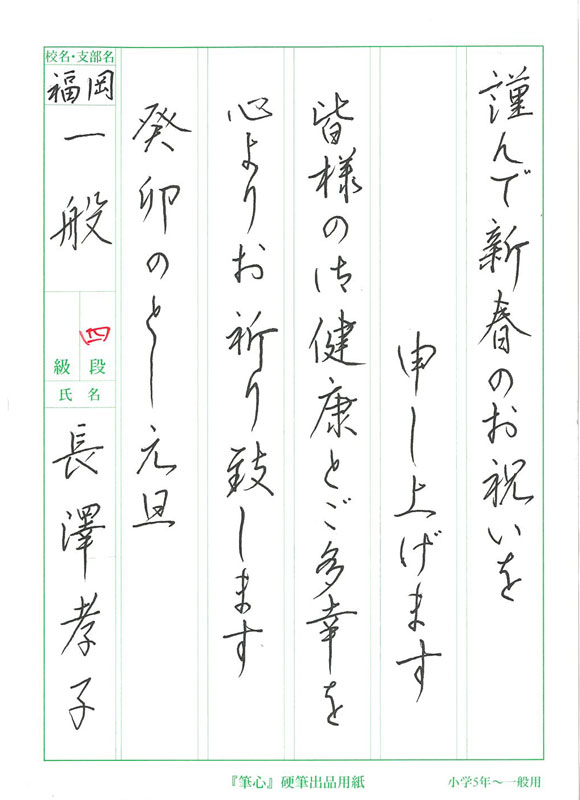 謹んで新春のお祝いを
申し上げます
皆様の御健康とご多幸を
心よりお祈り致します
癸卯のとし元旦
校名・支部名
福岡
一般
四
級 段
氏 名
長澤孝子
『筆心』硬筆出品用紙
小学5年〜一般用